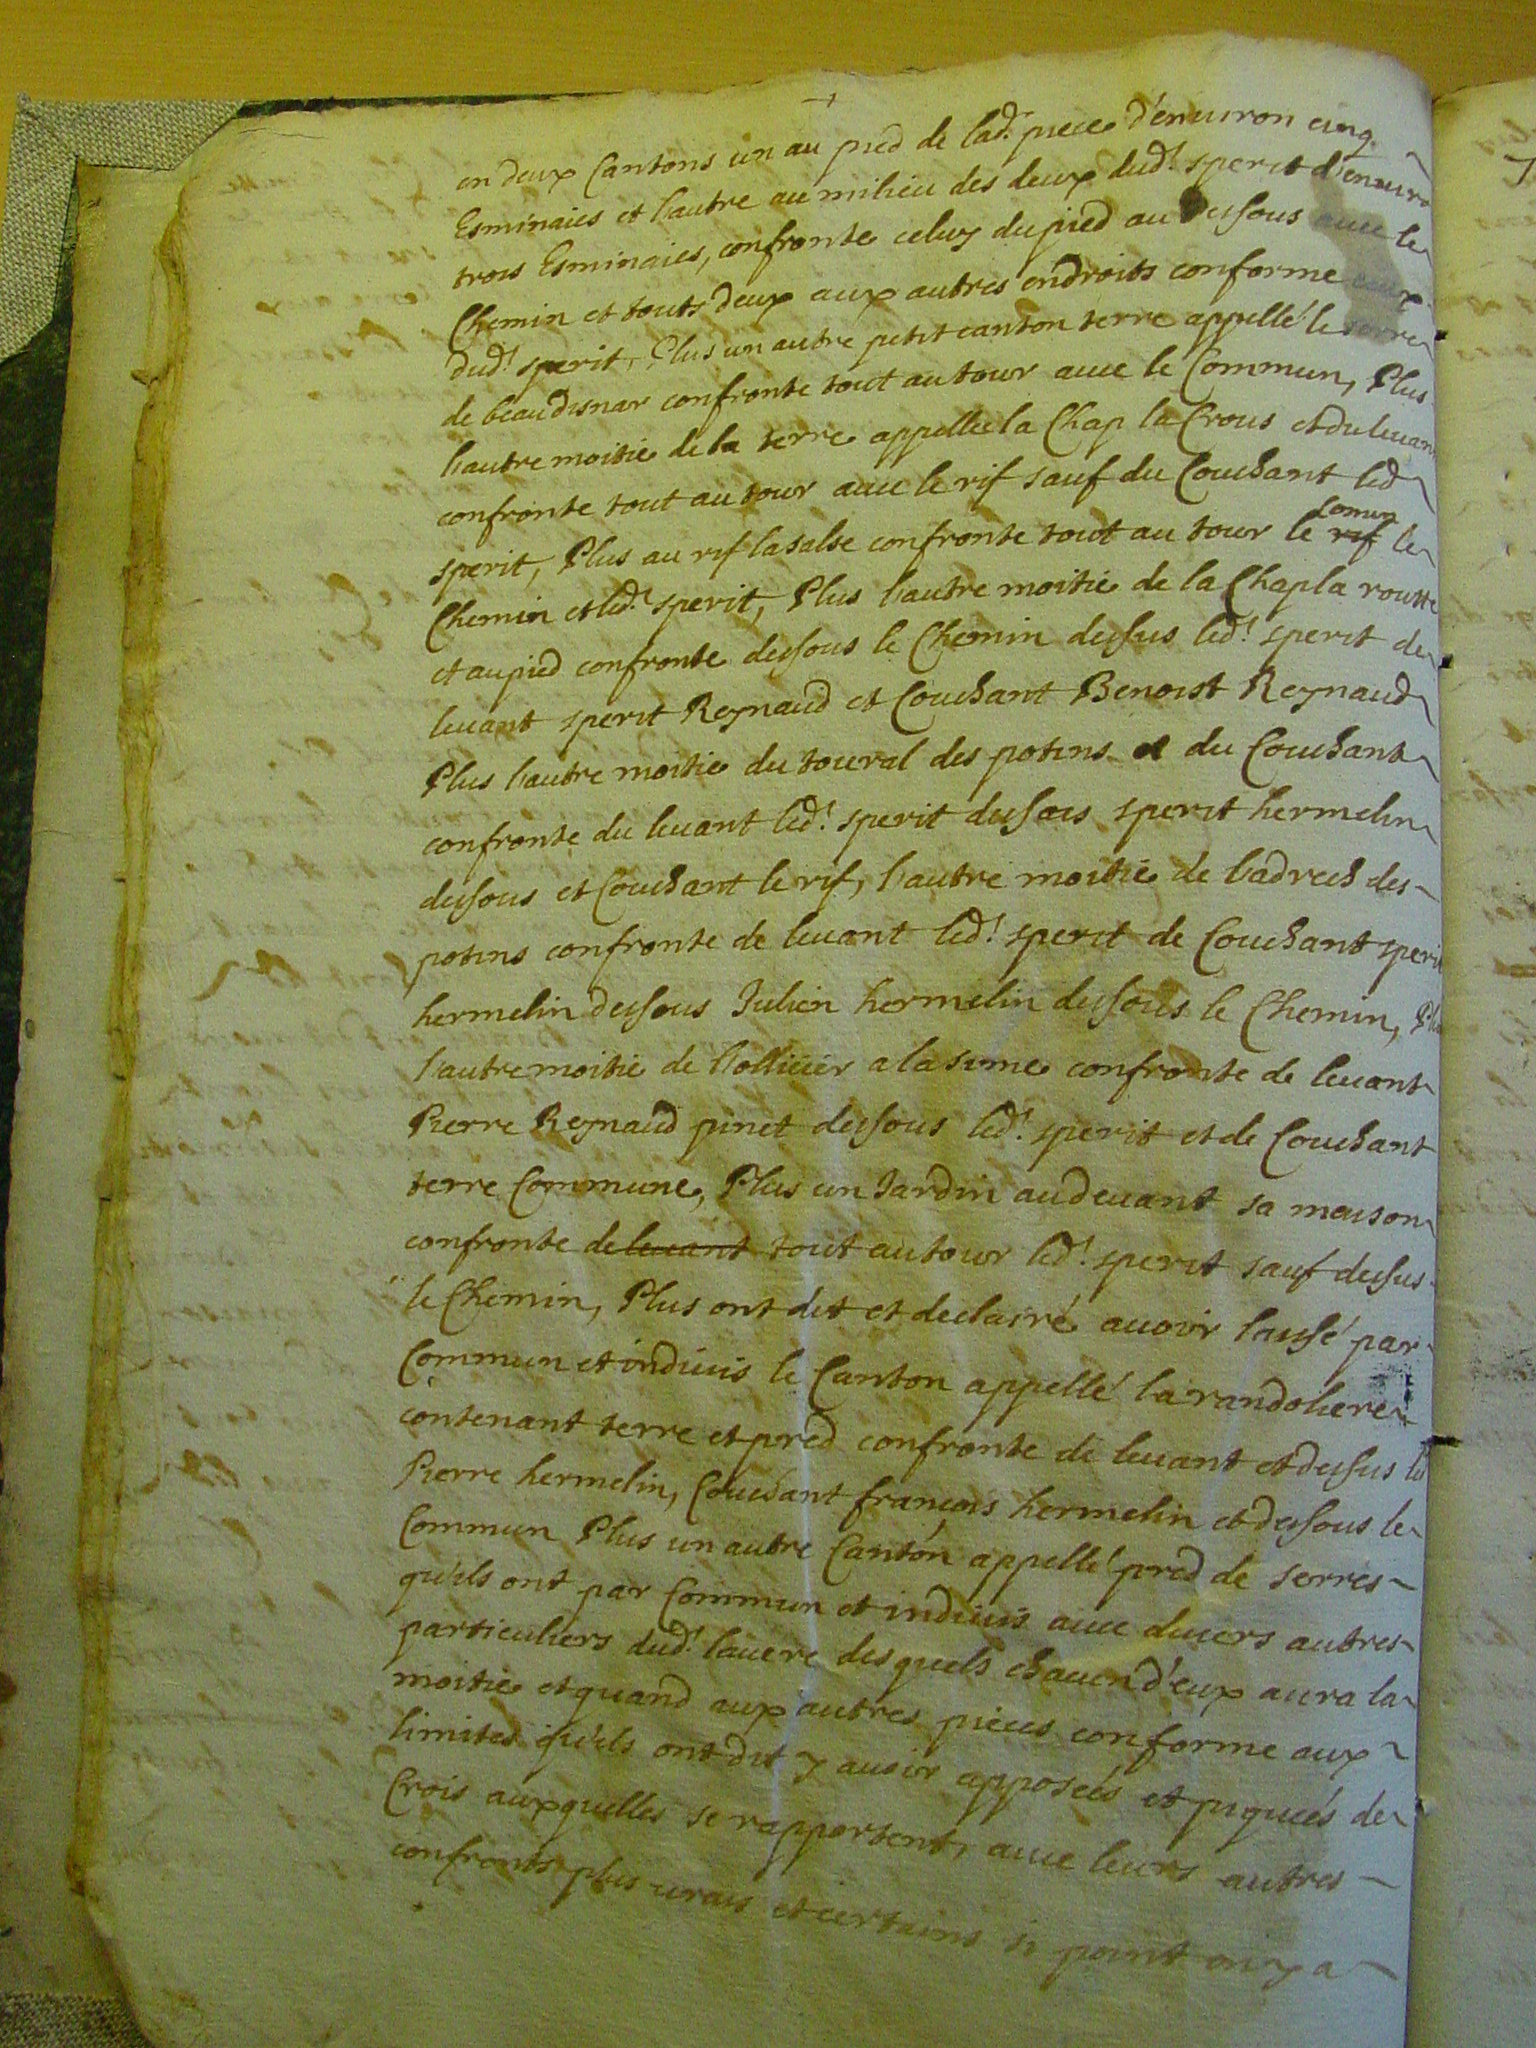 en deux Cantons un au pied de lad.e piece d'enuiron cinq
Esminaies et l'autre au milieu des deux dud.t sperit d'enuiro
trois Esminaies, confronte celuy du pied au dessous auec le
Chemin et touts deux aux autres endroits conforme ceux
dud.t sperit, Plus un autre petit canton terre appellé le serre
de beaudisnar confronte tout au tour auec le Commun, Plus
l'autre moitie de la terre appellée la Chap la Crous et du leuant
confronte tout au tour auec le rif sauf du Couchant led
sperit, Plus au rif la salse confronte tout au tour le rif Comun le
Chemin et led.t sperit, Plus l'autre moitie de la Chapla routte
et au pied confronte dessous le Chemin dessus led.t sperit de
leuant sperit Reynaud et Couchant Benoist Reynaud
Plus l'autre moitie du toural des potins et du Couchant
confronte du leuant led.t sperit dessus sperit hermelin
dessous et Couchant le rif, l'autre moitie de l'adrech des
potins confronte de leuant led.t sperit de Couchant sperit
hermelin dessous Julien hermelin dessous le Chemin, Plus
l'autre moitie de l'ollieier a la sime confronte de leuant
Pierre Reynaud pinet dessous led.t sperit et de Couchant
terre Commune, Plus un Jardin au deuant sa maison
confronte de leuant tout autour led.t sperit sauf dessus
le Chemin, Plus ont dit et declairé auoir laissé par
Commun et indiuis le Canton appellé la randoliere
contenant terre et pred confronte de leuant et dessus led
Pierre hermelin, Couchant françois hermelin et dessous le
Commun Plus un autre Canton appellé pred de serres
qu'ils ont par Commun et indiuis auec diuers autres
particuliers dud.t lauere desquels chacun d'eux aura la
moitie et quand aux autres pieces conforme aux
limites qu'ils ont dit y auoir apposées et piquées de
Crois auxquelles se rapportent, auec leurs autres
confronts plus urais et certains si point en y a